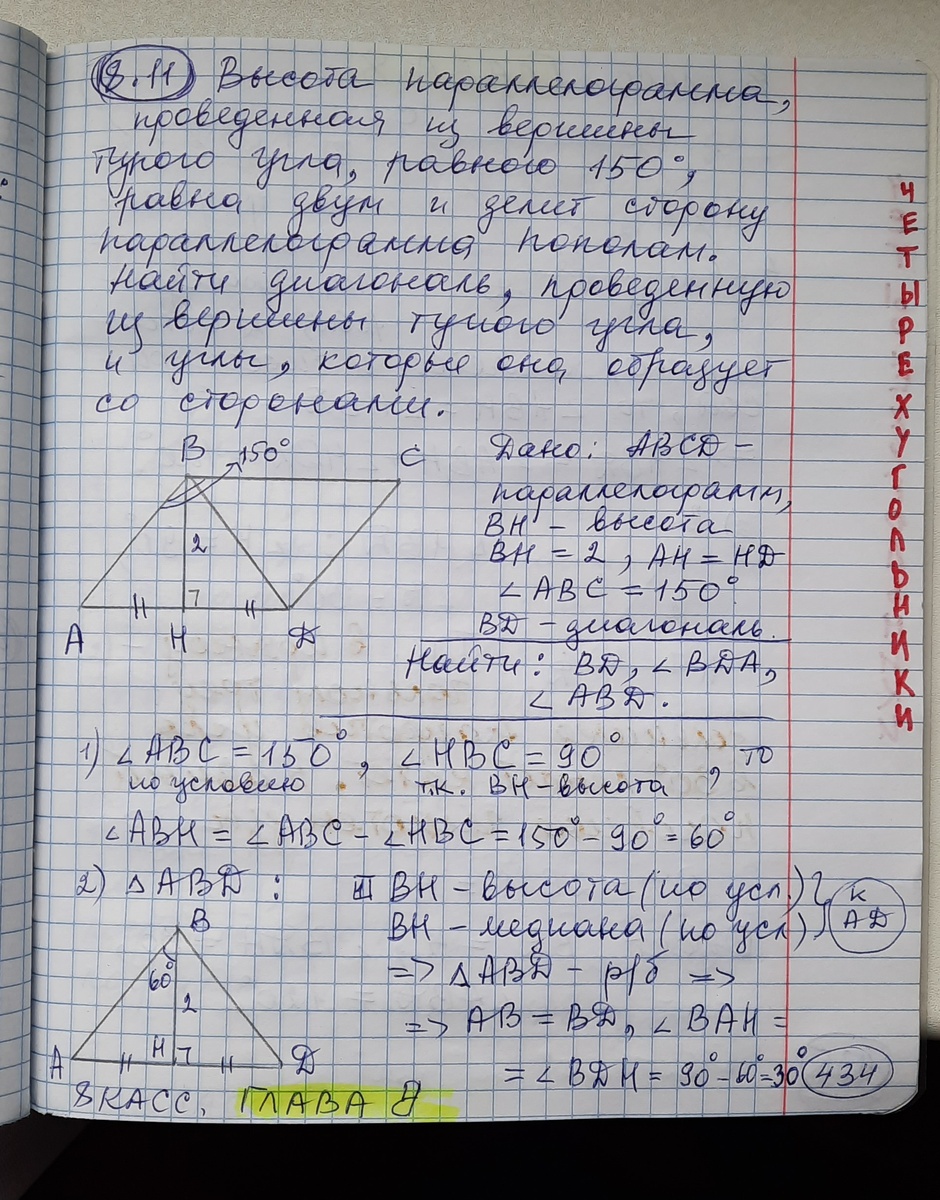 8.11 Высота параллелограмма,
проведенная из вершины
тупого угла, равного 150°,
равна двум и делит сторону
параллелограмма пополам.
Найти диагональ, проведенную
из вершины тупого угла,
и углы, которые она образует
со сторонами.
B 150° C
2
A H D
Дано: ABCD –
параллелограмм,
BH – высота
BH = 2, AH = HD
∠ABC = 150°
BD – диагональ.
Найти: BD, ∠BDA,
∠ABD.
1) ∠ABC = 150°, ∠HBC = 90°, то
по условию т.к. BH – высота
∠ABH = ∠ABC – ∠HBC = 150° – 90° = 60°
2) △ABD: BH – высота (по усл.) } к
BH – медиана (по усл) } AD
=> △ABD – р/б =>
=> AB = BD, ∠BAH =
= ∠BDH = 90° – 60° = 30°
B
60°
2
A H D
434
8 КАСС. ГЛАВА 8
ЧЕТЫРЕХУГОЛЬНИКИ